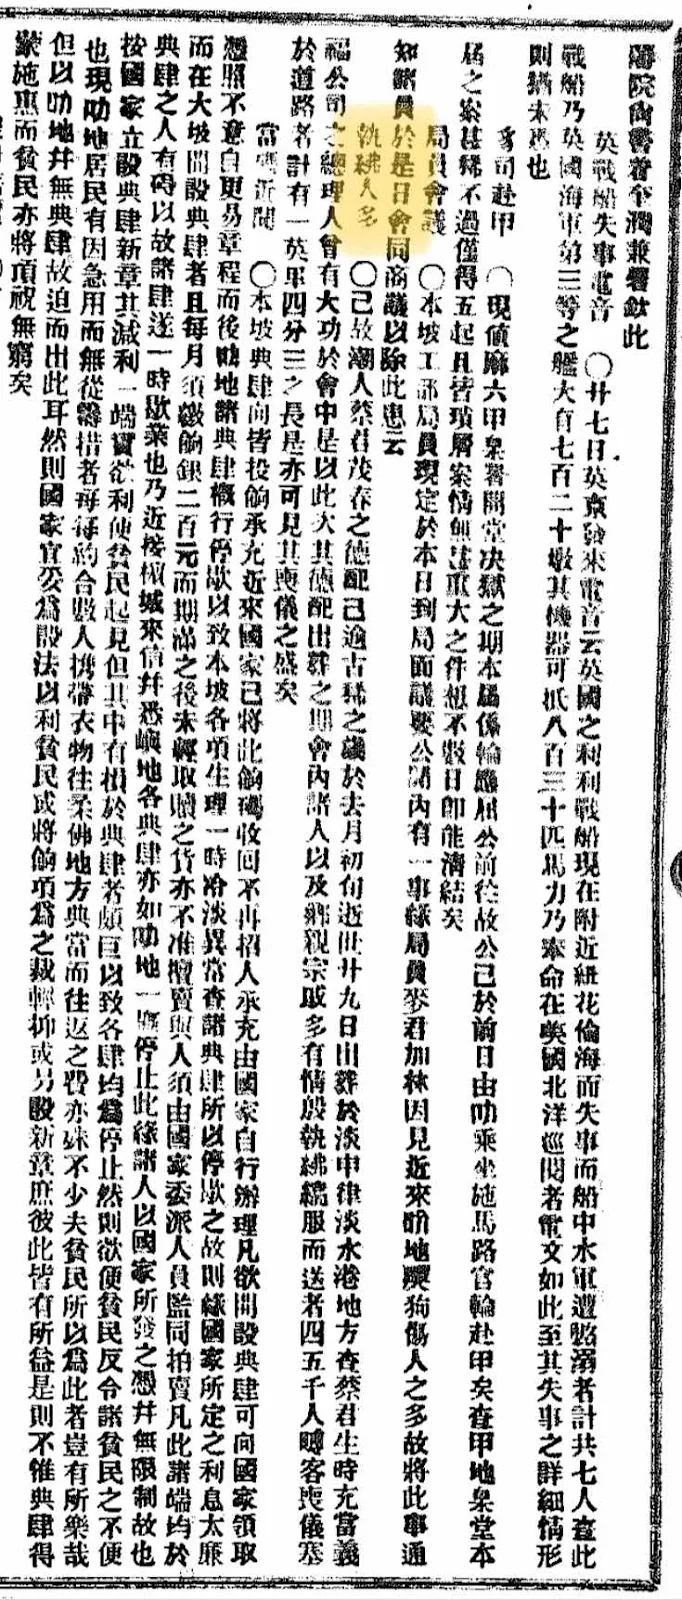 藩院尚書着奎潤兼署欽此
英戰船失事電音　〇廿七日英京發來電音云英國之利利戰船現在附近紐花倫海而失事而船中水軍遭溺者計共七人査此
戰船乃英國海軍第三等之艦大有七百二十墩其機器可抵八百三十匹馬力乃奉命在英國北洋巡閱者電文如此至其失事之詳細情形
則猶未悉也
臬司赴甲　〇現値麻六甲臬署開堂决獄之期本屆係輪應屈公前往故公已於前日由叻乘坐施馬路官輪赴甲矣査甲地臬堂本
屆之案甚稀不過僅得五起且皆瑣屑案情無甚重大之件想不數日卽能淸結矣
局員會議　〇本坡工部局員現定於本日到局面議要公諸內有一事緣局員麥君加林因見近來叻地瘋狗傷人之多故將此事通
知諸員於是日會同商議以除此患云
執紼人多　〇已故潮人蔡君茂春之德配已逾古稀之歲於去月初旬逝世廿九日出葬於淡申律淡水港地方査蔡君生時充當義
福公司之總理人曾有大功於會中是以此次其德配出葬之期會內諸人以及鄉親宗戚多有情殷執紼縞服而送者四五千人賻客喪儀塞
於道路者計有一英里四分三之長是亦可見其喪儀之盛矣
當碼近聞　〇本坡典肆向皆投餉承充近來國家已將此餉碼收回不再招人承充由國家自行辦理凡欲開設典肆可向國家領取
憑照不意自更易章程而後叻地諸典肆槪行停歇以致本坡各項生理一時冷淡異常查諸典肆所以停歇之故則緣國家所定之利息太廉
而在大坡開設典肆者且每月須繳餉銀二百元而期滿之後未經取贖之貨亦不准擅賣與人須由國家委派人員監同拍賣凡此諸端均於
典肆之人有碍以故諸肆遂一時歇業也乃近接檳城來信幷悉嶼地各典肆亦如叻地一槪停止此緣諸人以國家所發之憑幷無限制故也
按國家立設典肆新章其減利一端實欲利便貧民起見但其中有損於典肆者頗巨以致各肆均爲停止然則欲便貧民反令諸貧民之不便
也現叻地居民有因急用而無從籌措者每每約合數人携帶衣物往柔佛地方典當而往返之費亦殊不少夫貧民所以爲此者豈有所樂哉
但以叻地幷無典肆故迫而出此耳然則國家宜妥爲設法以利貧民或將餉項爲之裁輕抑或另設新章庶彼此皆有所益是則不惟典肆得
蒙施惠而貧民亦將頂祝無窮矣